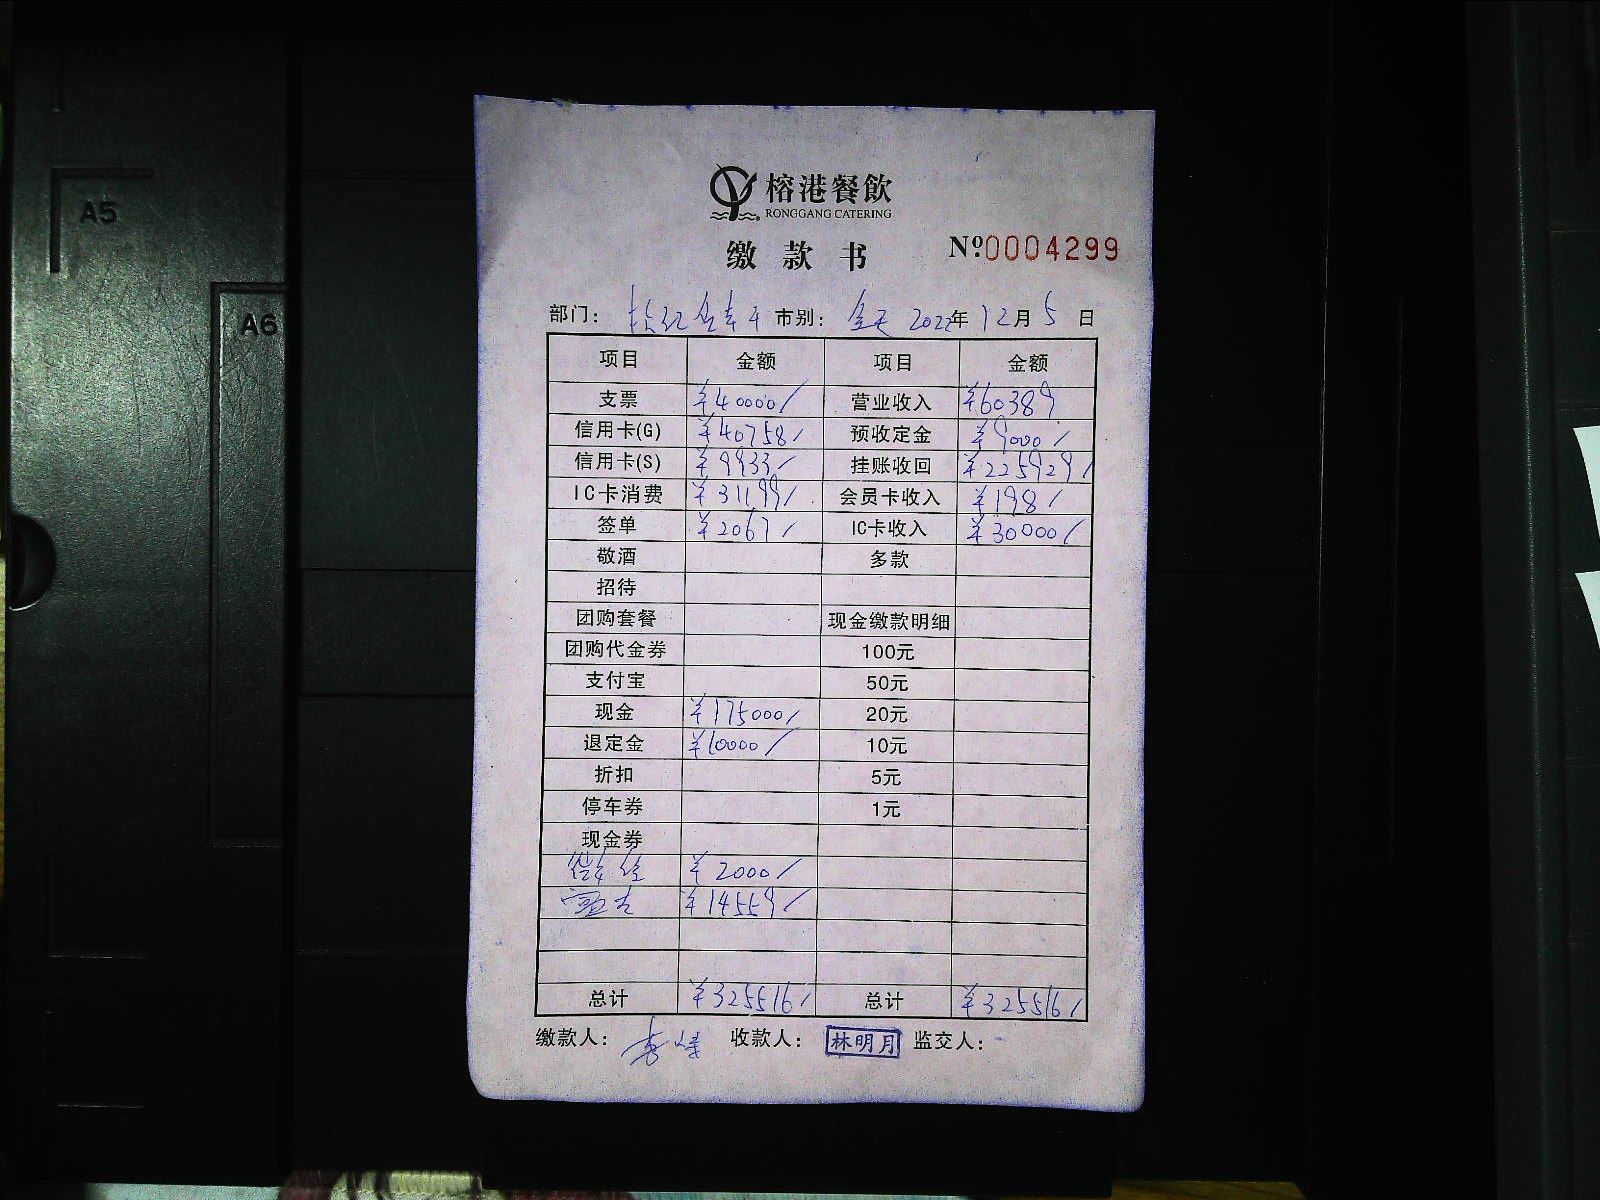 A5
A6
榕港餐飲
RONGGANG CATERING
缴款书
№0004299
部门: 市别: 全天 2022年12月5日
项目 金额 项目 金额
支票 ¥40000/ 营业收入 ¥60389
信用卡(G) ¥40758/ 预收定金 ¥9000/
信用卡(S) ¥9933/ 挂账收回 ¥225929/
IC卡消费 ¥31199/ 会员卡收入 ¥198/
签单 ¥2067/ IC卡收入 ¥30000/
敬酒 多款
招待
团购套餐 现金缴款明细
团购代金券 100元
支付宝 50元
现金 ¥175000/ 20元
退定金 ¥10000/ 10元
折扣 5元
停车券 1元
现金券
¥2000/
¥14559/
总计 ¥325516/ 总计 ¥325516/
缴款人: 收款人: 林明月 监交人: